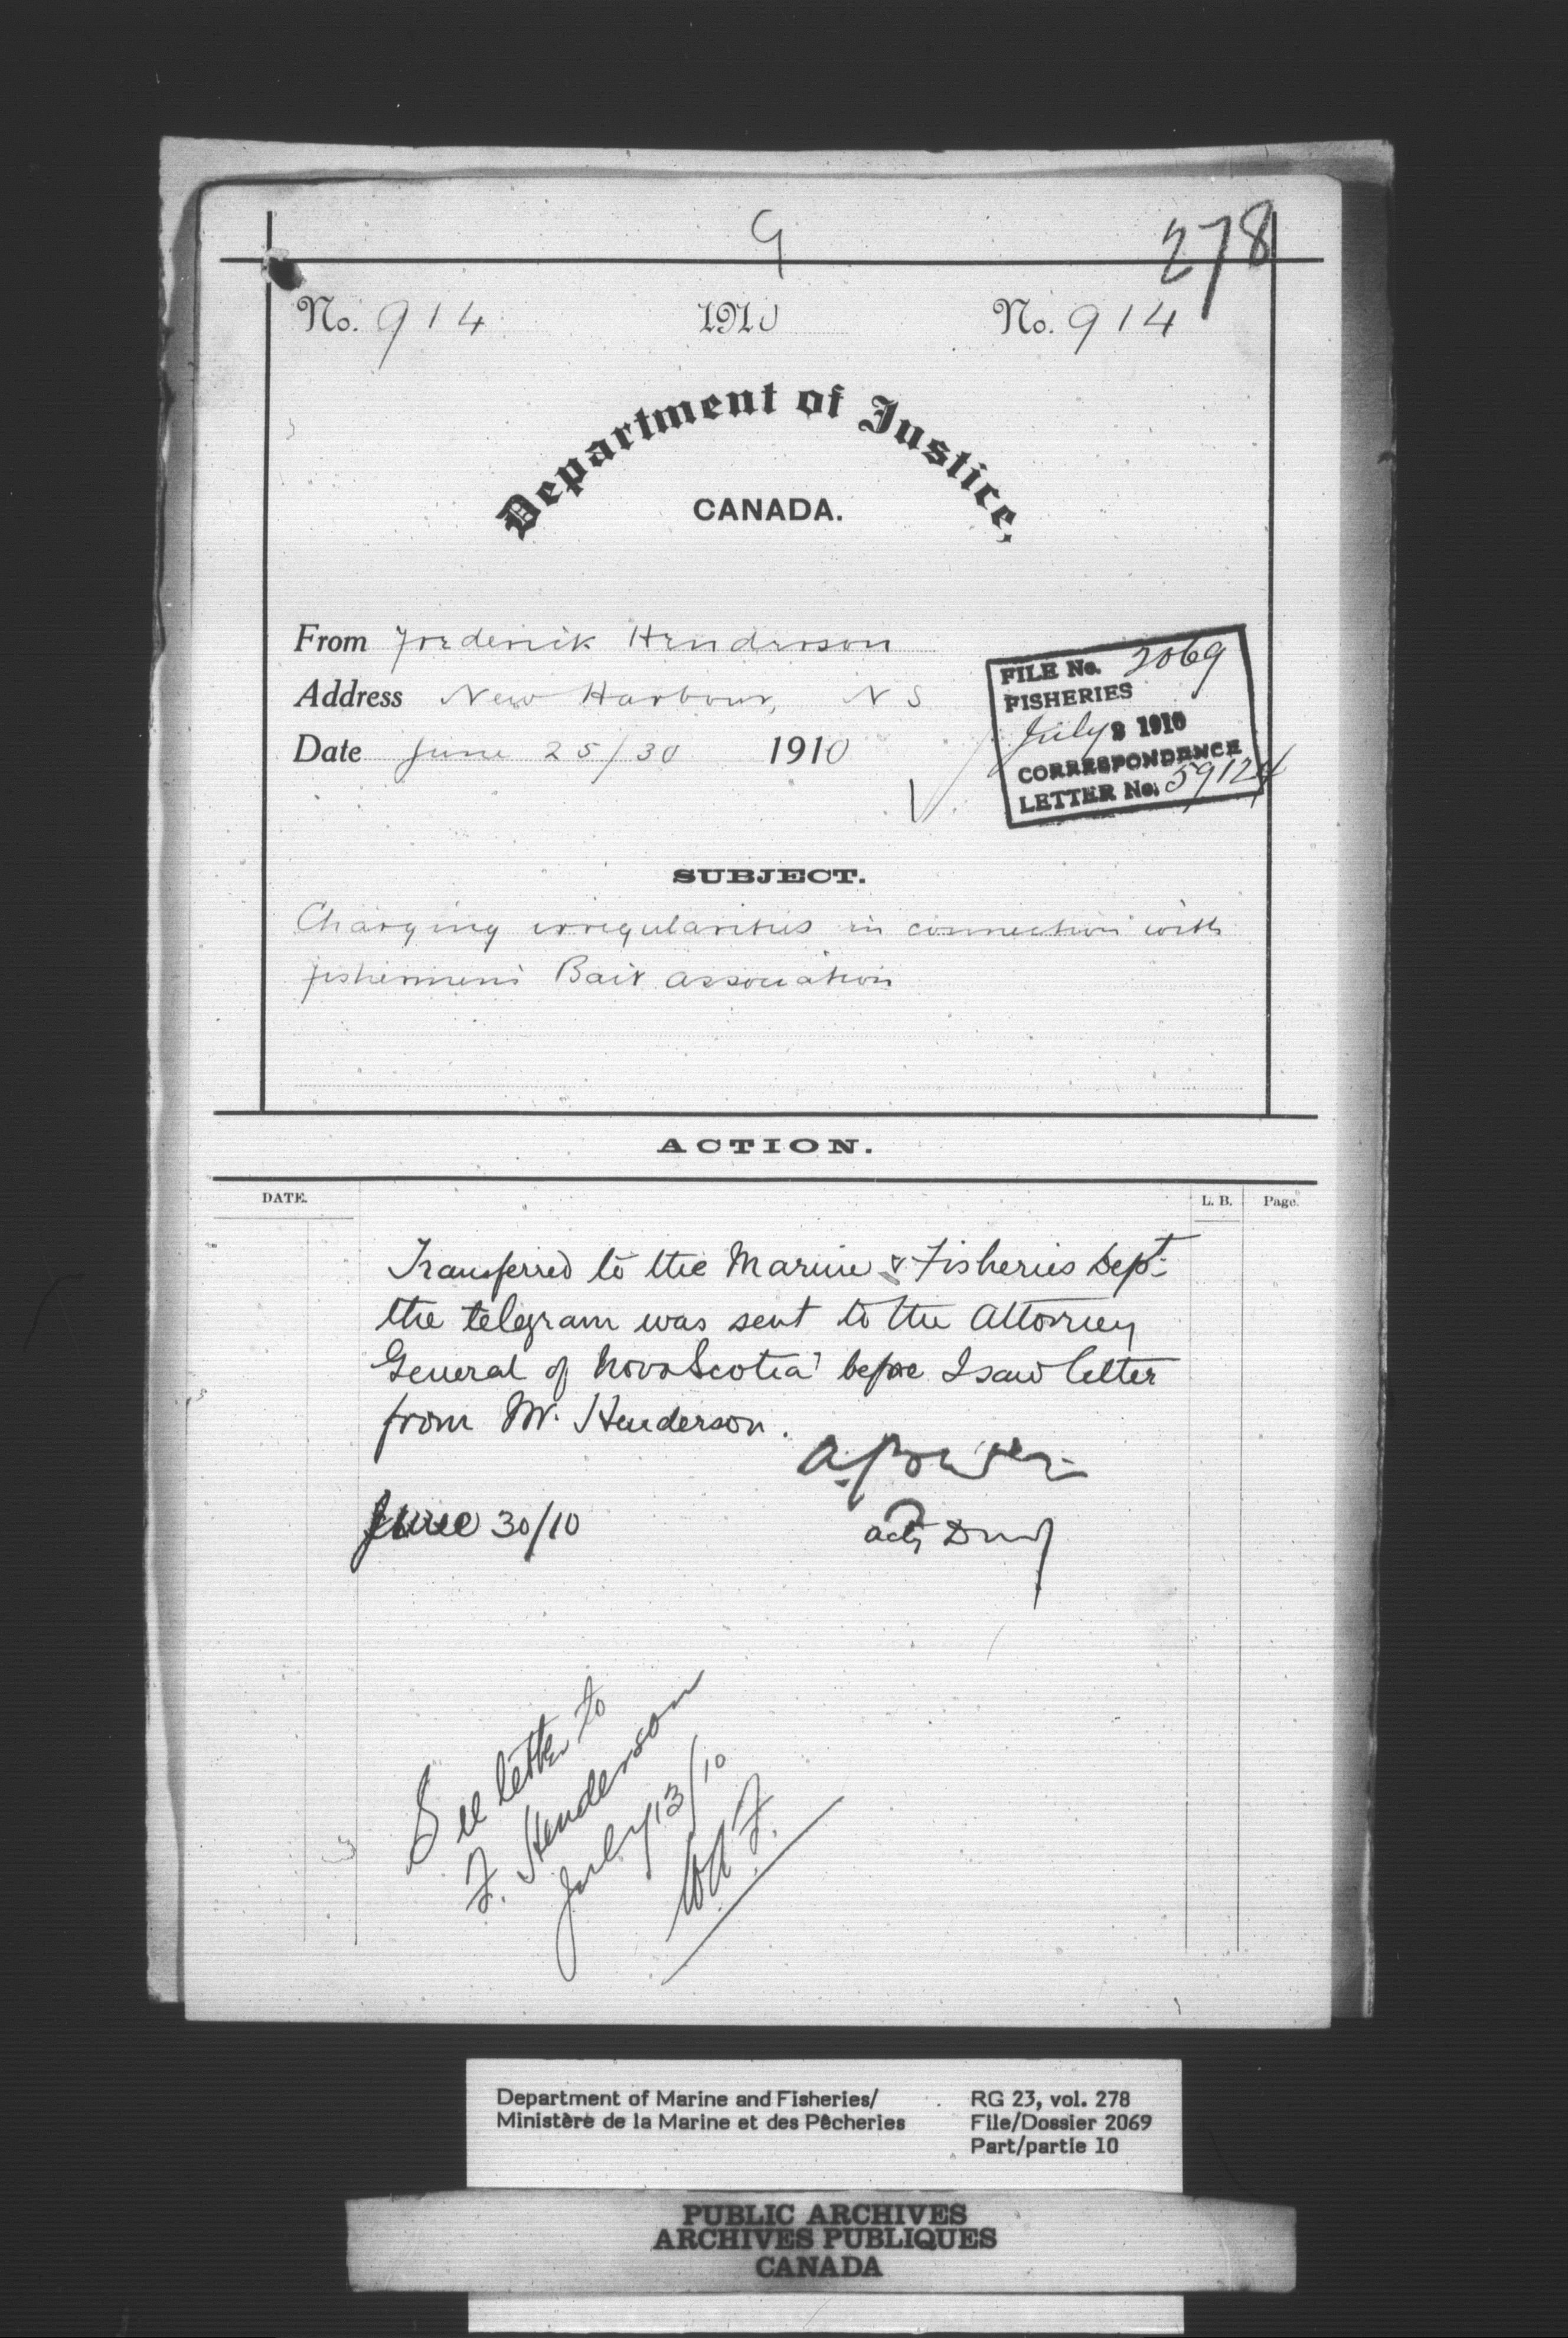 9
278
No. 914 1910 No. 914
Department of Justice,
CANADA.
From Frederick Henderson
Address New Harbour, N S
Date June 25/30 1910
FILE No. 2069
FISHERIES
July 2 1910
CORRESPONDENCE
LETTER No. 59124
SUBJECT.
Charging irregularities in connection with
fishermens Bait association
ACTION.
DATE. L. B. Page.
Transferred to the Marine & Fisheries Dept.
the telegram was sent to the Attorney
General of Nova Scotia before I saw letter
from Mr. Henderson.
A. Power
actg
June 30/10
See letter to
F. Henderson
July 13/10
Department of Marine and Fisheries/
Ministère de la Marine et des Pêcheries
RG 23, vol. 278
File/Dossier 2069
Part/partie 10
PUBLIC ARCHIVES
ARCHIVES PUBLIQUES
CANADA